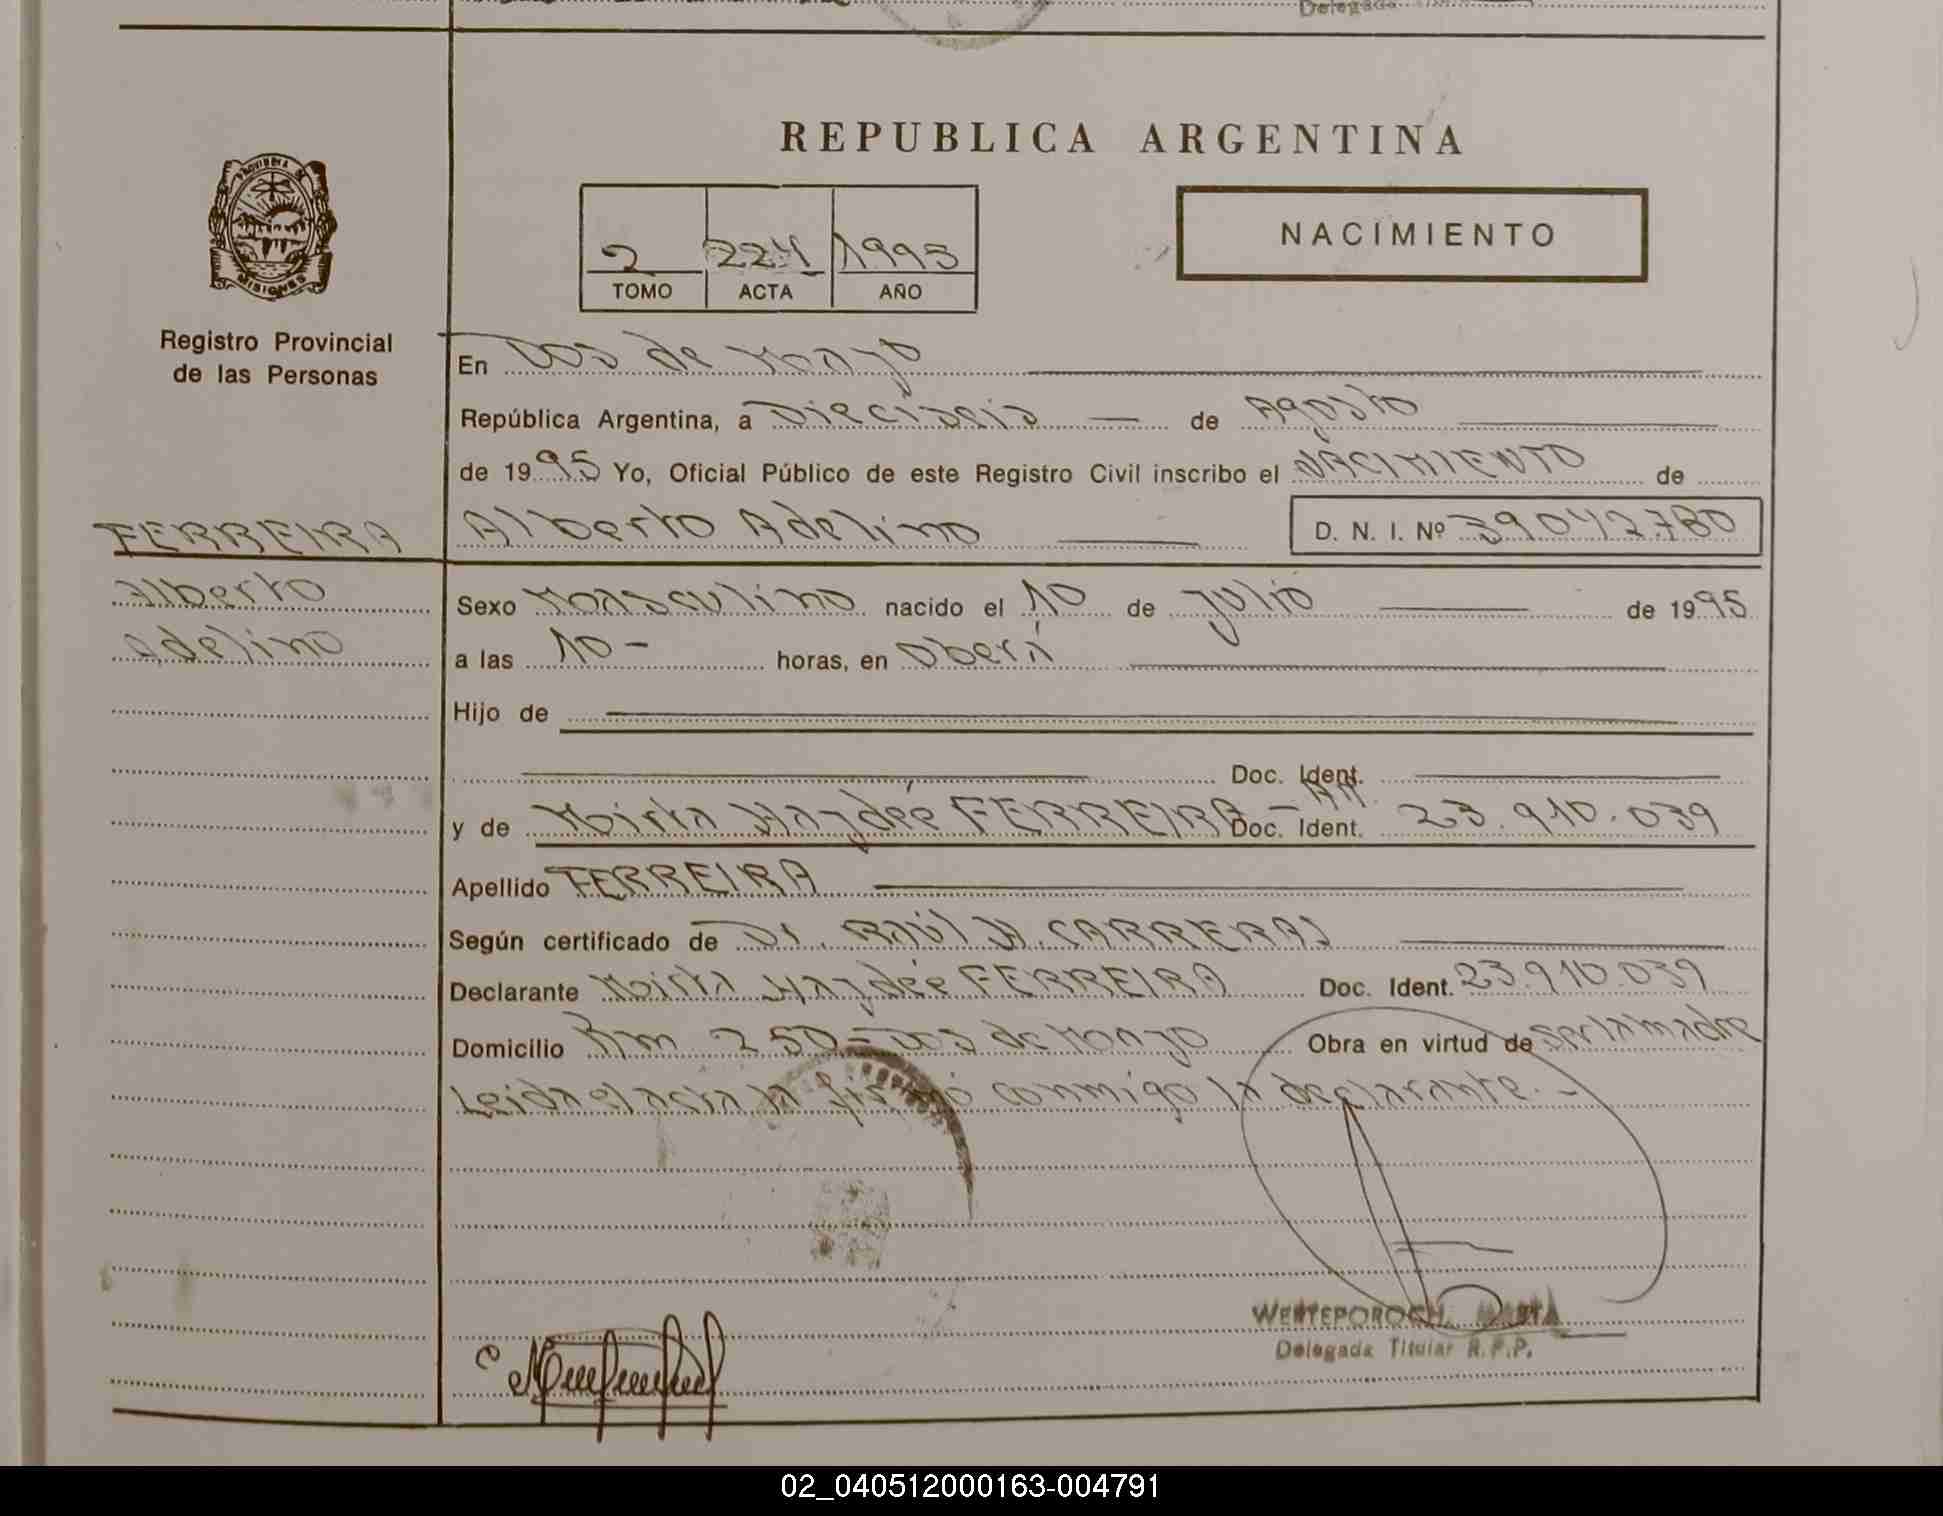 Delegada
REPUBLICA ARGENTINA
PROVINCIA DE
MISIONES
Registro Provincial
de las Personas
2 224 1995
TOMO ACTA AÑO
NACIMIENTO
En Dos de Mayo
República Argentina, a Dieciseis — de Agosto
de 1995 Yo, Oficial Público de este Registro Civil inscribo el NACIMIENTO de
FERREIRA
Alberto
Adelino
Alberto Adelino D. N. I. Nº 39042780
Sexo Masculino nacido el 10 de Julio de 1995
a las 10 - horas, en Oberá
Hijo de
Doc. Ident.
y de Mirta Haydée FERREIRA - AR. Doc. Ident. 23.910.039
Apellido FERREIRA
Según certificado de Dr. RAÚl H. CARRERAS
Declarante Mirta Haydée FERREIRA Doc. Ident. 23.910.039
Domicilio Km 250 - Dos de Mayo Obra en virtud de ser la madre
Leida el acta la firmó conmigo la declarante. -
Delegada Titular R.P.P.
02_040512000163-004791